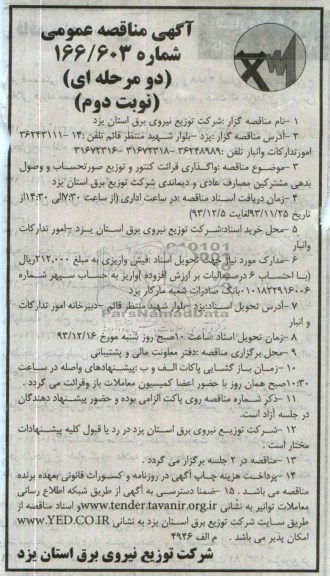 آگهی مناقصه عمومی
شماره ۱۶۶/۶۰۳
(دو مرحله ای)
(نوبت دوم)
۱ -نام مناقصه گزار :شرکت توزیع نیروی برق استان یزد
۲ -آدرس مناقصه گزار :یزد -بلوار شهید منتظر قائم تلفن :۱۴ -۳۶۲۴۳۱۱۱
امورتدارکات وانبار تلفن :۳۶۲۴۸۹۸۹ -۳۱۶۷۲۳۱۸ -۳۱۶۷۲۳۱۶
۳ -موضوع مناقصه :واگذاری قرائت کنتور و توزیع صورتحساب و وصول
بدهی مشترکین مصارف عادی و دیماندی شرکت توزیع برق استان یزد
۴ -زمان دریافت اسناد مناقصه :در ساعت اداری (از ساعت ۷:۳۰الی ۱۴:۳۰)از
تاریخ ۹۳/۱۱/۲۵لغایت ۹۳/۱۲/۵)
۵ -محل خرید اسناد:شرکت توزیع نیروی برق استان یزد -امور تدارکات
وانبار
۶ -مدارک مورد نیاز جهت تحویل اسناد :فیش واریزی به مبلغ ۲۱۲.۰۰۰ریال
(با احتساب ۶ درصد مالیات بر ارزش افزوده )واریز به حساب سپهر شماره
۰۱۰۱۸۳۲۹۱۶۰۰۶بانک صادرات شعبه مارکار یزد
۷ -آدرس تحویل اسناد:یزد -بلوار شهید منتظر قائم -دبیرخانه امور تدارکات
و انبار
۸ -زمان تحویل اسناد :ساعت ۱۰صبح روز شنبه مورخ ۹۳/۱۲/۱۶
۹ -محل برگزاری مناقصه :دفتر معاونت مالی و پشتیبانی
۱۰ -زمان باز گشایی پاکات الف و ب :پیشنهادهای واصله در ساعت
۱۰:۳۰صبح همان روز با حضور اعضا کمیسیون معاملات باز وقرائت می گردد .
۱۱ -ذکر شماره مناقصه روی پاکت الزامی بوده و حضور پیشنهاد دهندگان
در جلسه آزاد است.
۱۲ -شرکت توزیع نیروی برق استان یزد در رد یا قبول کلیه پیشنهادات
مختار است .
۱۳ -مناقصه در ۲ جلسه برگزار می گردد .
۱۴ -پرداخت هزینه چاپ آگهی در روزنامه و کسورات قانونی بعهده برنده
مناقصه می باشد . ۱۵ -ضمنا دسترسی به آگهی از طریق شبکه اطلاع رسانی
معاملات توانیر به نشانی www.tender.tavanir.org.irو اسناد مناقصه از
طریق سایت شرکت توزیع برق استان یزد به نشانی WWW.YED.CO.IR
امکان پذیر می باشد . م الف ۴۹۴۶
شرکت توزیع نیروی برق استان یزد